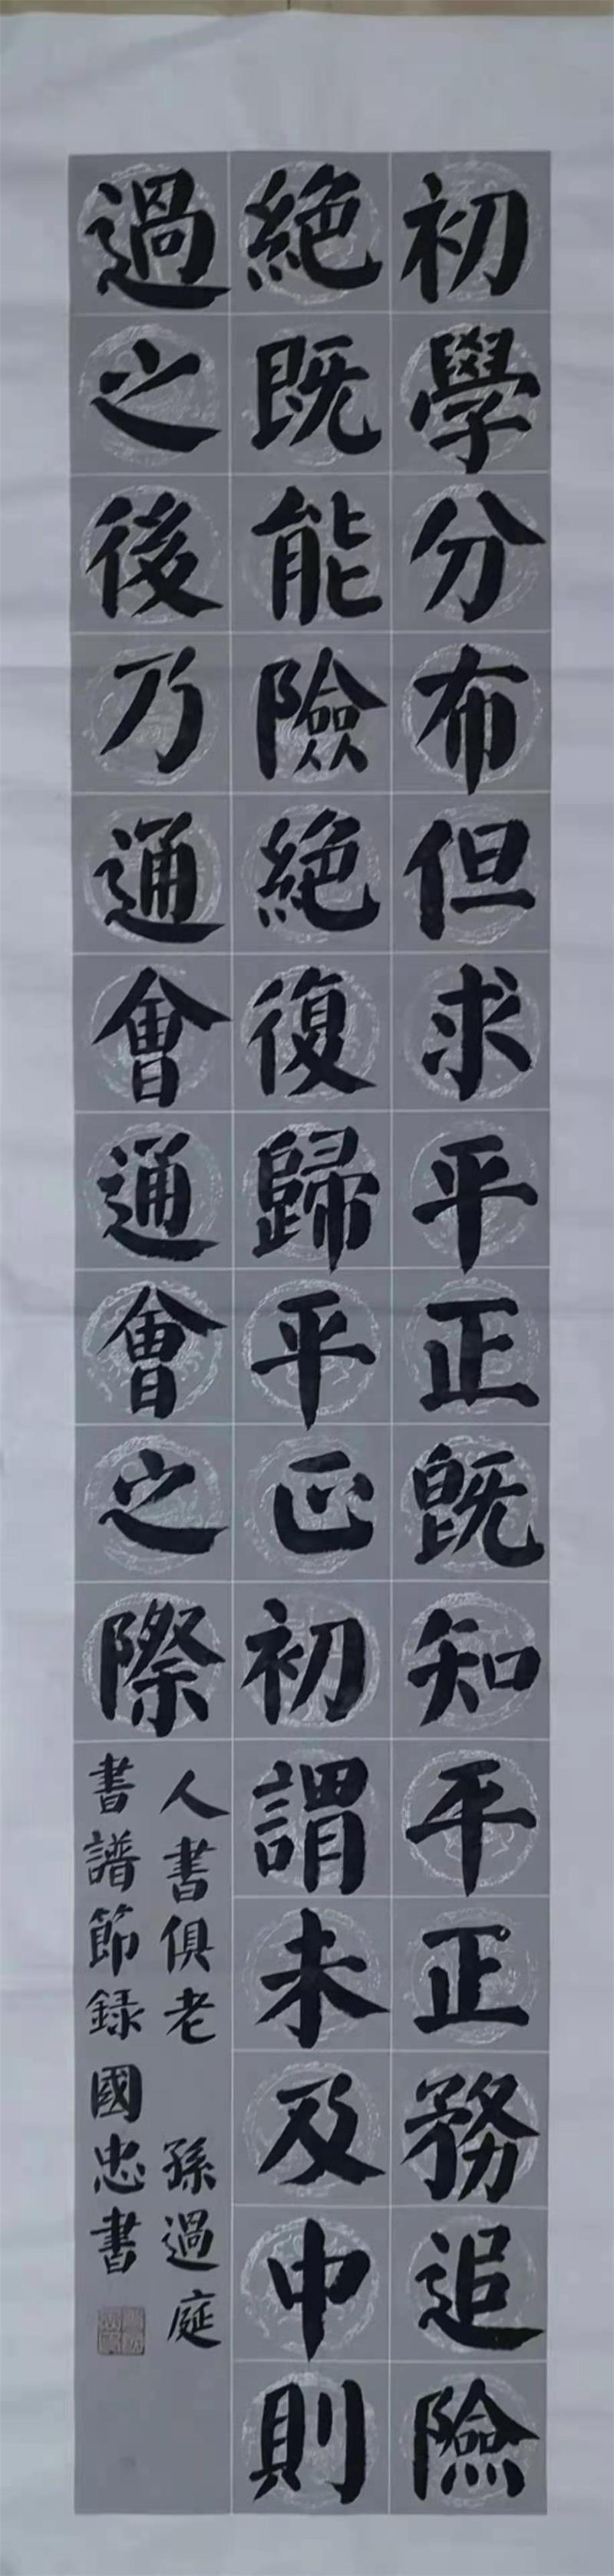 初學分布但求平正既知平正務追險
絕既能險絕復歸平正初謂未及中則
過之後乃通會通會之際
人書俱老 孫過庭
書譜節録國忠書